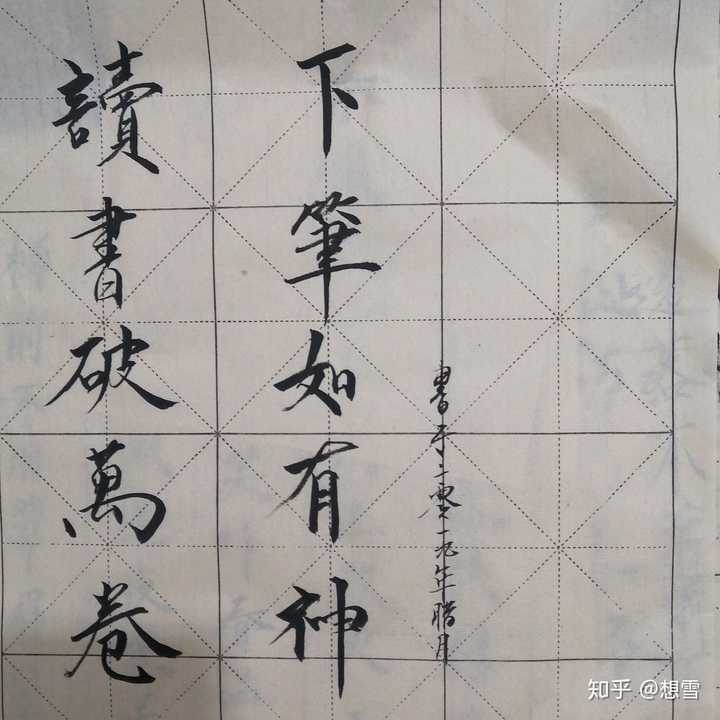 讀書破萬卷
下筆如有神
書于二零一九年腊月
知乎 @想雪